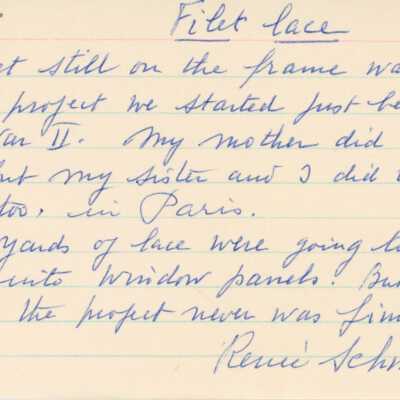 Filet lace
et still on the frame wa
project we started just be
ar II. My mother did
but my sister and I did
too, in Paris.
yards of lace were going t
into window panels. Bu
the project never was fin
Renée Sch